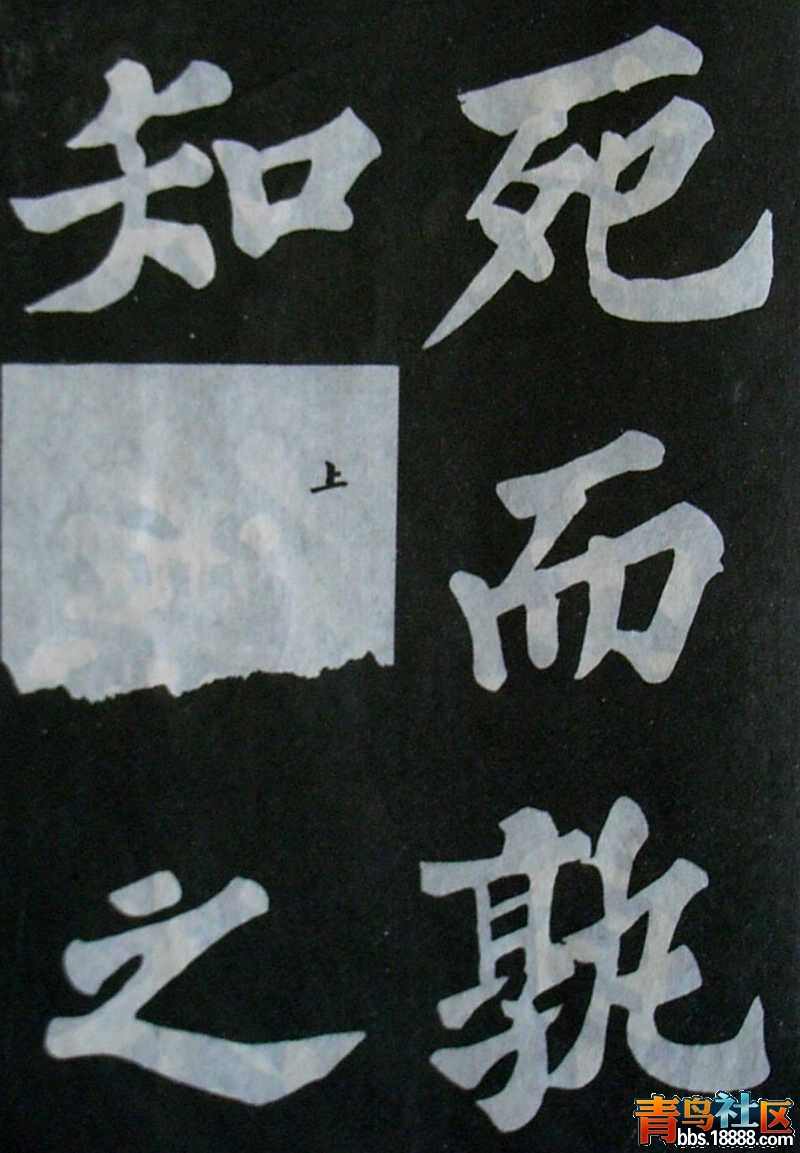 死而孰
知上之
青鸟社区
bbs.18888.com